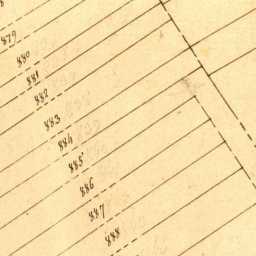 879
880
881
882
883
884
885
886
887
888